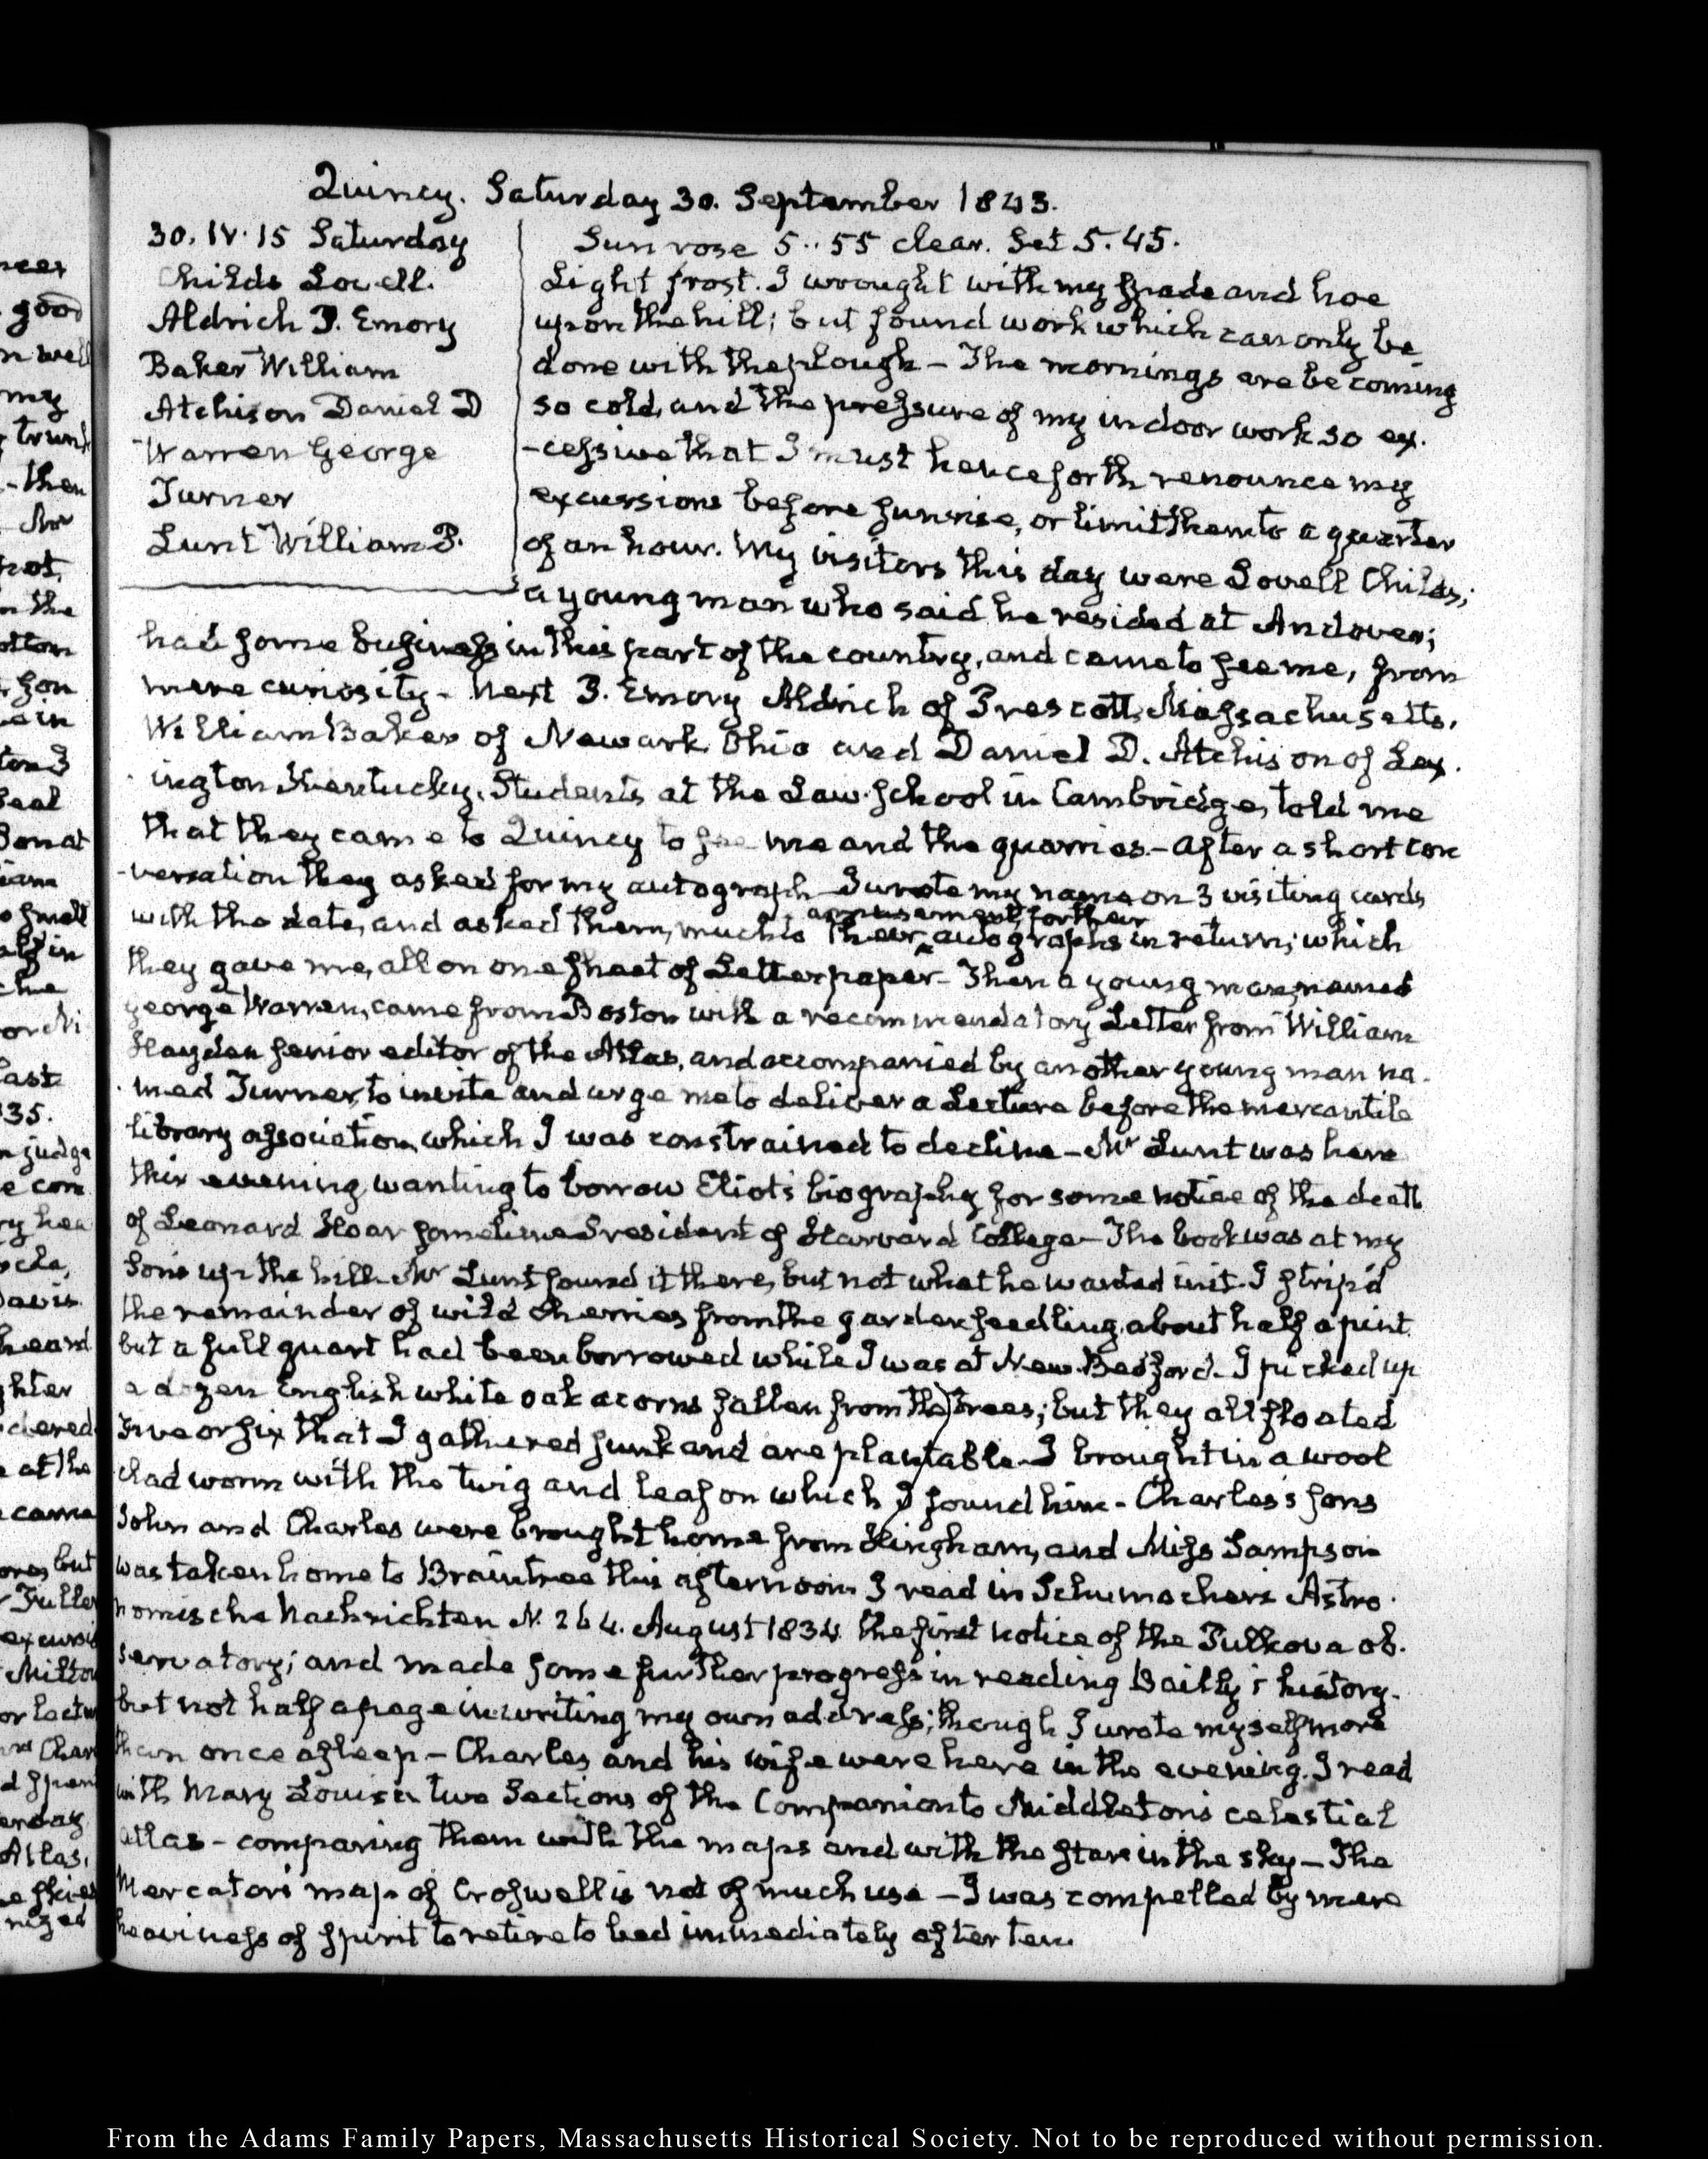 Quincy. Saturday 30. September 1843.
30. IV. 15 Saturday
Childs Lovell.
Aldrich P. Emory
Baker William
Atchison Daniel D
Warren George
Turner
Lunt William P.
Sun rose 5..55 clear. Set 5.45.
Light frost. I wrought with my spade and hoe
upon the hill; but found work which can only be
done with the plough – The mornings are becoming
so cold, and the pressure of my indoor work so ex-
-cessive that I must henceforth renounce my
excursions before sunrise, or limit them to a quarter
of an hour. My visitors this day were Lovell Childs;
a young man who said he resided at Andover;
had some business in this part of the country, and came to see me, from
mere curiosity – Next P. Emory Aldrich of Prescott, Massachusetts,
William Baker of Newark Ohio and Daniel D. Atchison of Lex-
-ington Kentucky, Students at the Law-School in Cambridge, told me
that they came to Quincy to see me and the quarries – after a short con
-versation they asked for my autograph – I wrote my name on 3 visiting cards
with the date, and asked them, much to their amusement, for their autographs in return; which
they gave me, all on one sheet of Letter paper – Then a young man, named
George Warren, came from Boston with a recommendatory Letter from William
Hayden senior editor of the Atlas, and accompanied by another young man na-
-med Turner, to invite and urge me to deliver a Lecture before the mercantile
library association, which I was constrained to decline – Mr Lunt was here
this evening, wanting to borrow Eliot's biography for some notice of the death
of Leonard Hoar sometime President of Harvard College – The book was at my
Sons up the hill – Mr Lunt found it there, but not what he wanted in it – I strip'd
the remainder of wild cherries from the garden seedling, about half a pint
but a full quart had been borrowed while I was at New-Bedford – I picked up
a dozen English white oak acorns fallen from the trees; but they all floated
Five or six that I gathered sunk and are plantable – I brought in a wool
clad worm with the twig and leaf on which I found him – Charles's sons
John and Charles were brought home from Hingham, and Miss Sampson
was taken home to Braintree this afternoon I read in Schumachers Astro-
nomische Nachrichten N. 264. August 1834. the first notice of the Pulkova ob-
servatory; and made some further progress in reading Bailly's history-
but not half a page in writing my own address; though I wrote myself more
than once asleep – Charles and his wife were here in the evening. I read
with Mary Louisa two Sections of the Companion to Middleton's celestial
atlas – comparing them with the maps and with the stars in the sky – The
Mercators map of Croswell is not of much use – I was compelled by mere
heaviness of spirit to retire to bed immediately after ten.
From the Adams Family Papers, Massachusetts Historical Society. Not to be reproduced without permission.